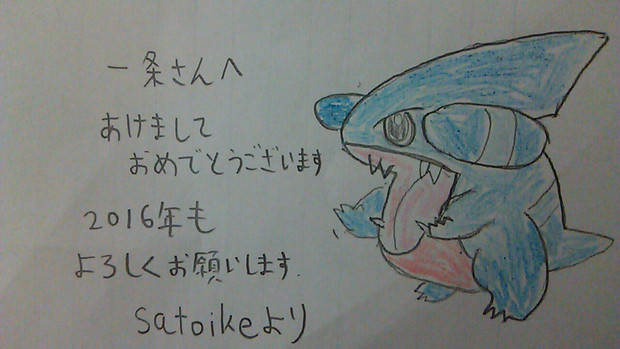 一条さんへ
あけまして
おめでとうございます
2016年も
よろしくお願いします.
satoikeより